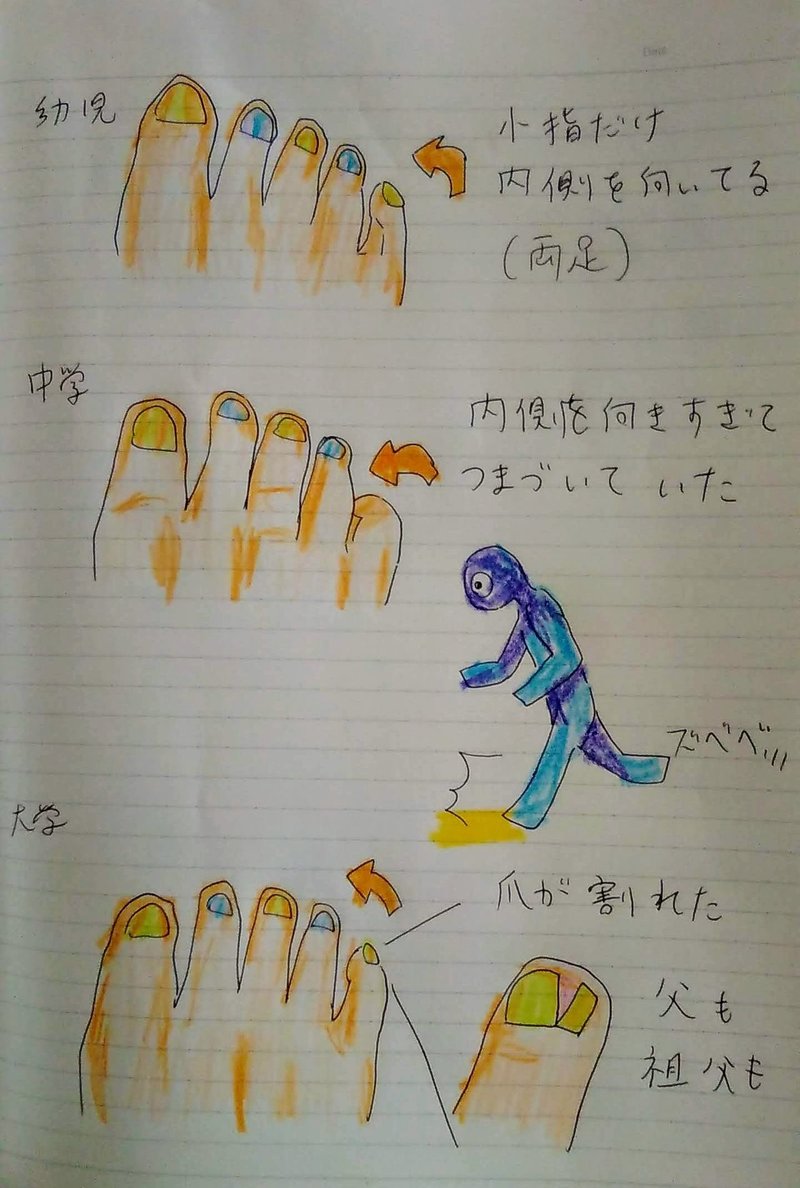 幼児
小指だけ
内側を向いてる
(両足)
中学
内側を向きすぎて
つまづいていた
ズベベ
大学
爪が割れた
父も
祖父も